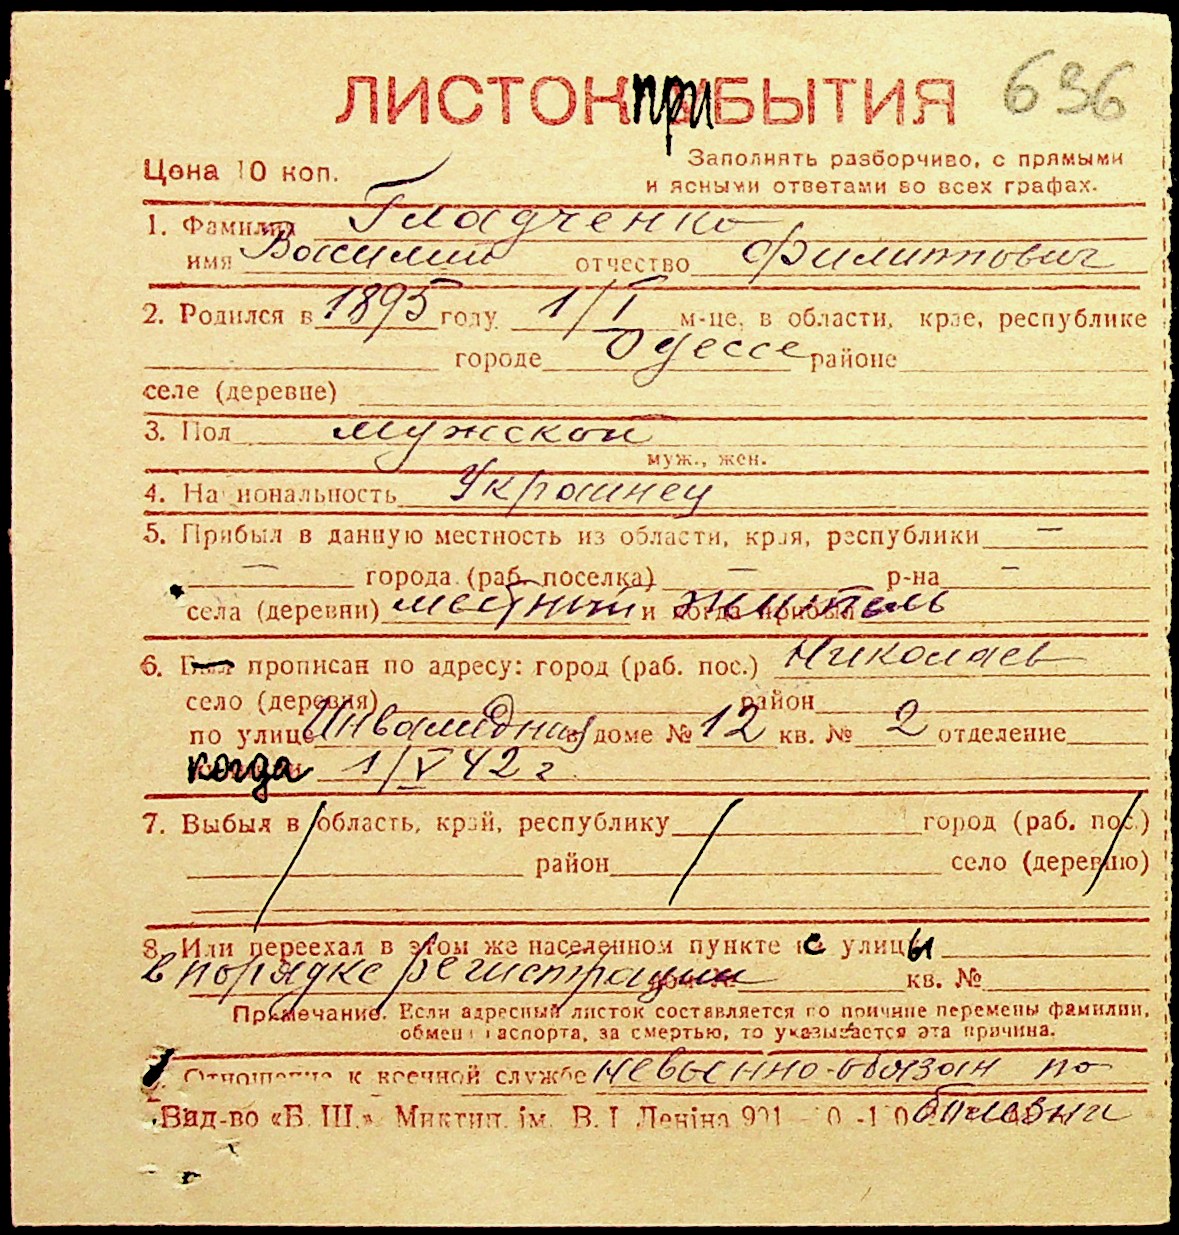 ЛИСТОК ПРИБЫТИЯ 696
Цена 10 коп.
Заполнять разборчиво, с прямыми
и ясными ответами во всех графах.
1. Фамилия Гладченко
имя Василий отчество Филиппович
2. Родился в 1895 году 1/I м-це, в области, крае, республике
городе Одессе районе
селе (деревне)
3. Пол мужской
муж., жен.
4. Национальность Украинец
5. Прибыл в данную местность из области, края, республики —
— города (раб. поселка) — р-на —
села (деревни) местный и когда прибыл житель
6. прописан по адресу: город (раб. пос.) Николаев
село (деревня) район
по улице Инвалидная в доме № 12 кв. № 2 отделение
когда 1/V 42 г
7. Выбыл в область, край, республику город (раб. пос.)
район село (деревню)
8. Или переехал в этом же населенном пункте с улицы
в порядке регистрации дом № кв. №
Примечание. Если адресный листок составляется по причине перемены фамилии,
обмена паспорта, за смертью, то указывается эта причина.
Отношение к военной службе невоенно-обязан по
Вид-во «Б. Ш.» Миктип. ім. В. І. Леніна болезни